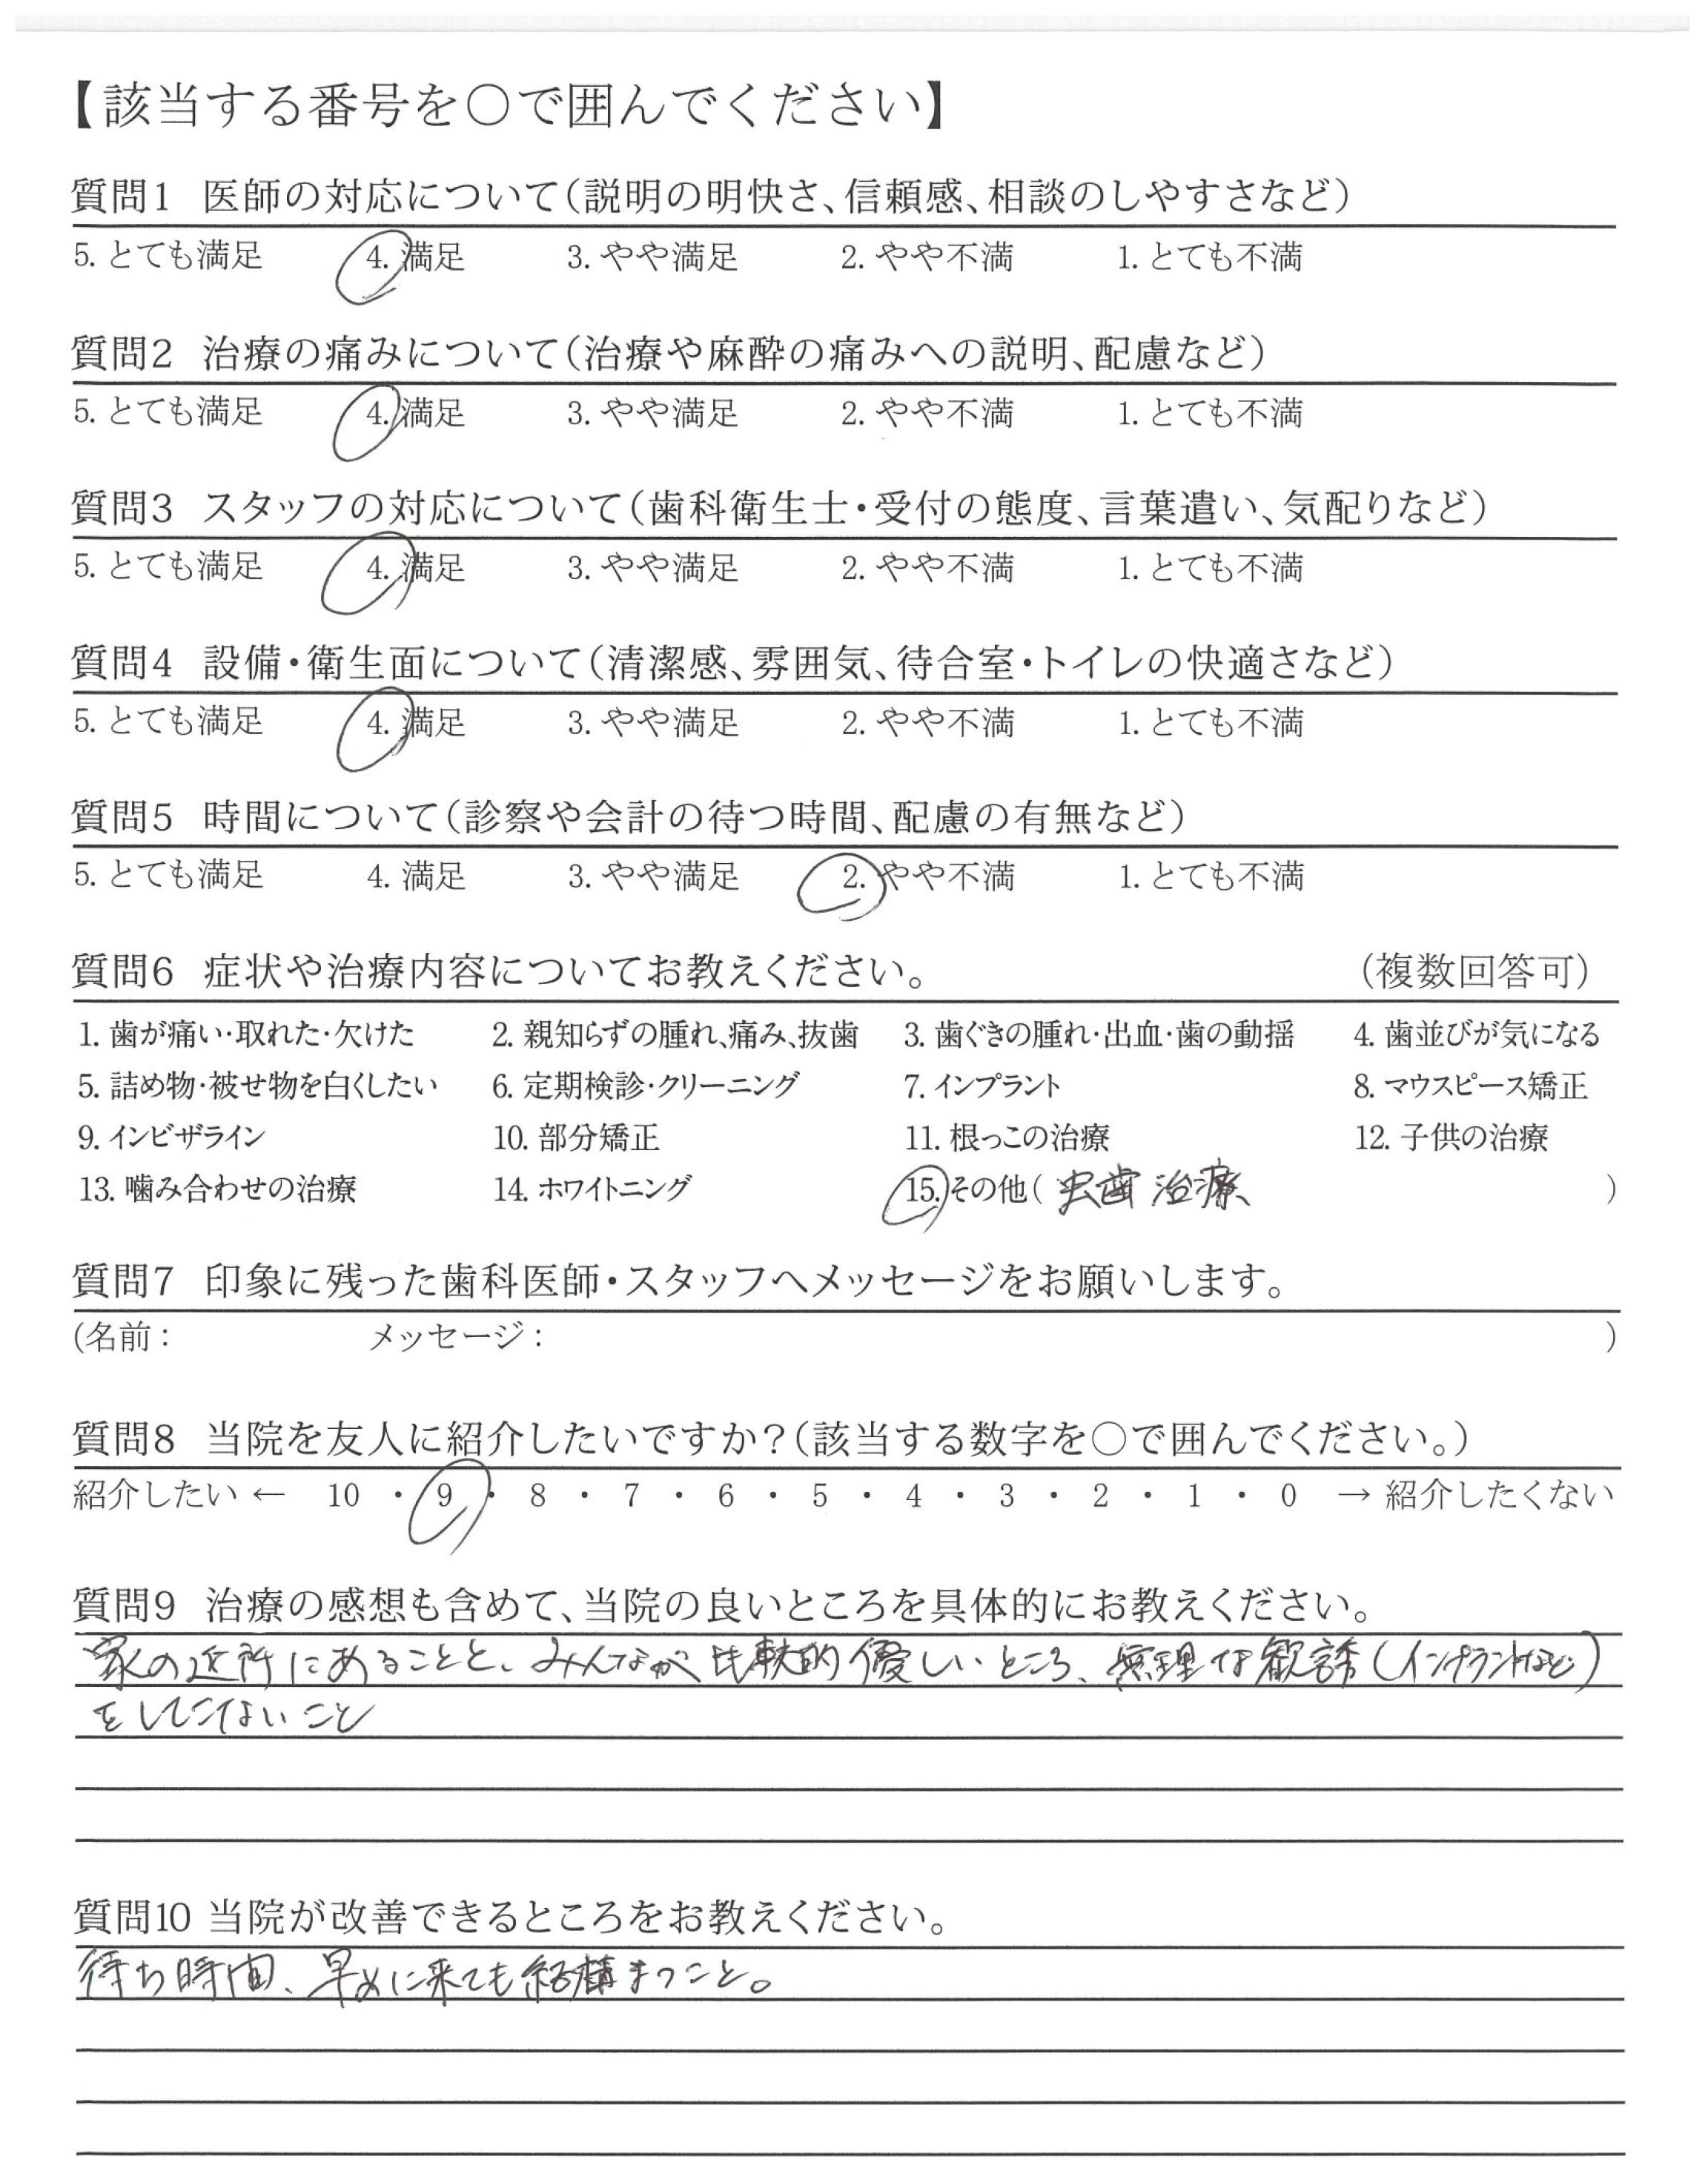 【該当する番号を○で囲んでください】
質問1 医師の対応について(説明の明快さ、信頼感、相談のしやすさなど)
5. とても満足 4. 満足 3. やや満足 2. やや不満 1. とても不満
質問2 治療の痛みについて(治療や麻酔の痛みへの説明、配慮など)
5. とても満足 4. 満足 3. やや満足 2. やや不満 1. とても不満
質問3 スタッフの対応について(歯科衛生士・受付の態度、言葉遣い、気配りなど)
5. とても満足 4. 満足 3. やや満足 2. やや不満 1. とても不満
質問4 設備・衛生面について(清潔感、雰囲気、待合室・トイレの快適さなど)
5. とても満足 4. 満足 3. やや満足 2. やや不満 1. とても不満
質問5 時間について(診察や会計の待つ時間、配慮の有無など)
5. とても満足 4. 満足 3. やや満足 2. やや不満 1. とても不満
質問6 症状や治療内容についてお教えください。 (複数回答可)
1. 歯が痛い・取れた・欠けた 2. 親知らずの腫れ、痛み、抜歯 3. 歯ぐきの腫れ・出血・歯の動揺 4. 歯並びが気になる
5. 詰め物・被せ物を白くしたい 6. 定期検診・クリーニング 7. インプラント 8. マウスピース矯正
9. インビザライン 10. 部分矯正 11. 根っこの治療 12. 子供の治療
13. 噛み合わせの治療 14. ホワイトニング 15. その他( 虫歯治療 )
質問7 印象に残った歯科医師・スタッフへメッセージをお願いします。
(名前： メッセージ： )
質問8 当院を友人に紹介したいですか?(該当する数字を○で囲んでください。)
紹介したい ← 10 ・ 9 ・ 8 ・ 7 ・ 6 ・ 5 ・ 4 ・ 3 ・ 2 ・ 1 ・ 0 → 紹介したくない
質問9 治療の感想も含めて、当院の良いところを具体的にお教えください。
家の近所にあることと、みんなが比較的優しいところ、無理な勧誘(インプラントなど)
をしてこないこと
質問10 当院が改善できるところをお教えください。
待ち時間、早めに来ても結構まつこと。